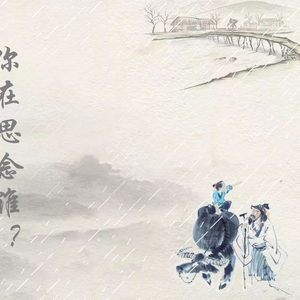 你在思念谁？